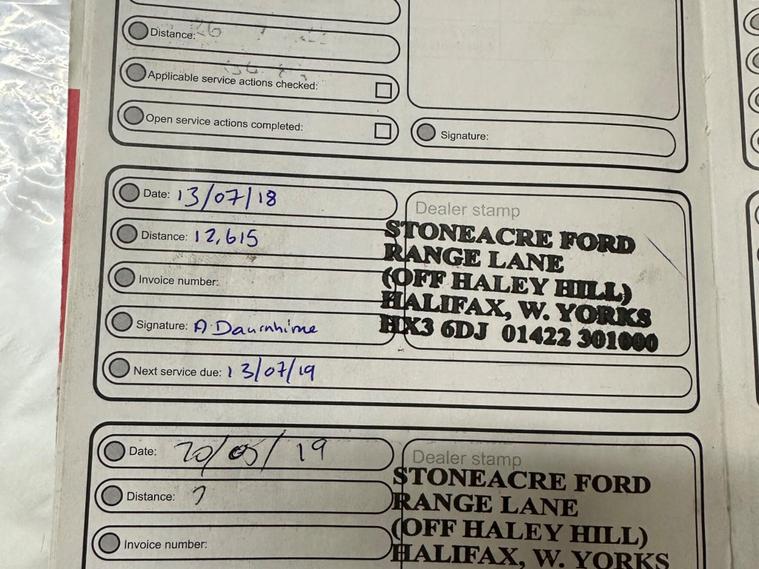 Distance:
Applicable service actions checked:
Open service actions completed:
Signature:
Date: 13/07/18
Distance: 12,615
Invoice number:
Signature: A
Next service due: 13/07/19
Dealer stamp
STONEACRE FORD
RANGE LANE
(OFF HALEY HILL)
HALIFAX, W. YORKS
HX3 6DJ 01422 301000
Date: 20/05/19
Distance:
Invoice number:
Dealer stamp
STONEACRE FORD
RANGE LANE
(OFF HALEY HILL)
HALIFAX, W. YORKS